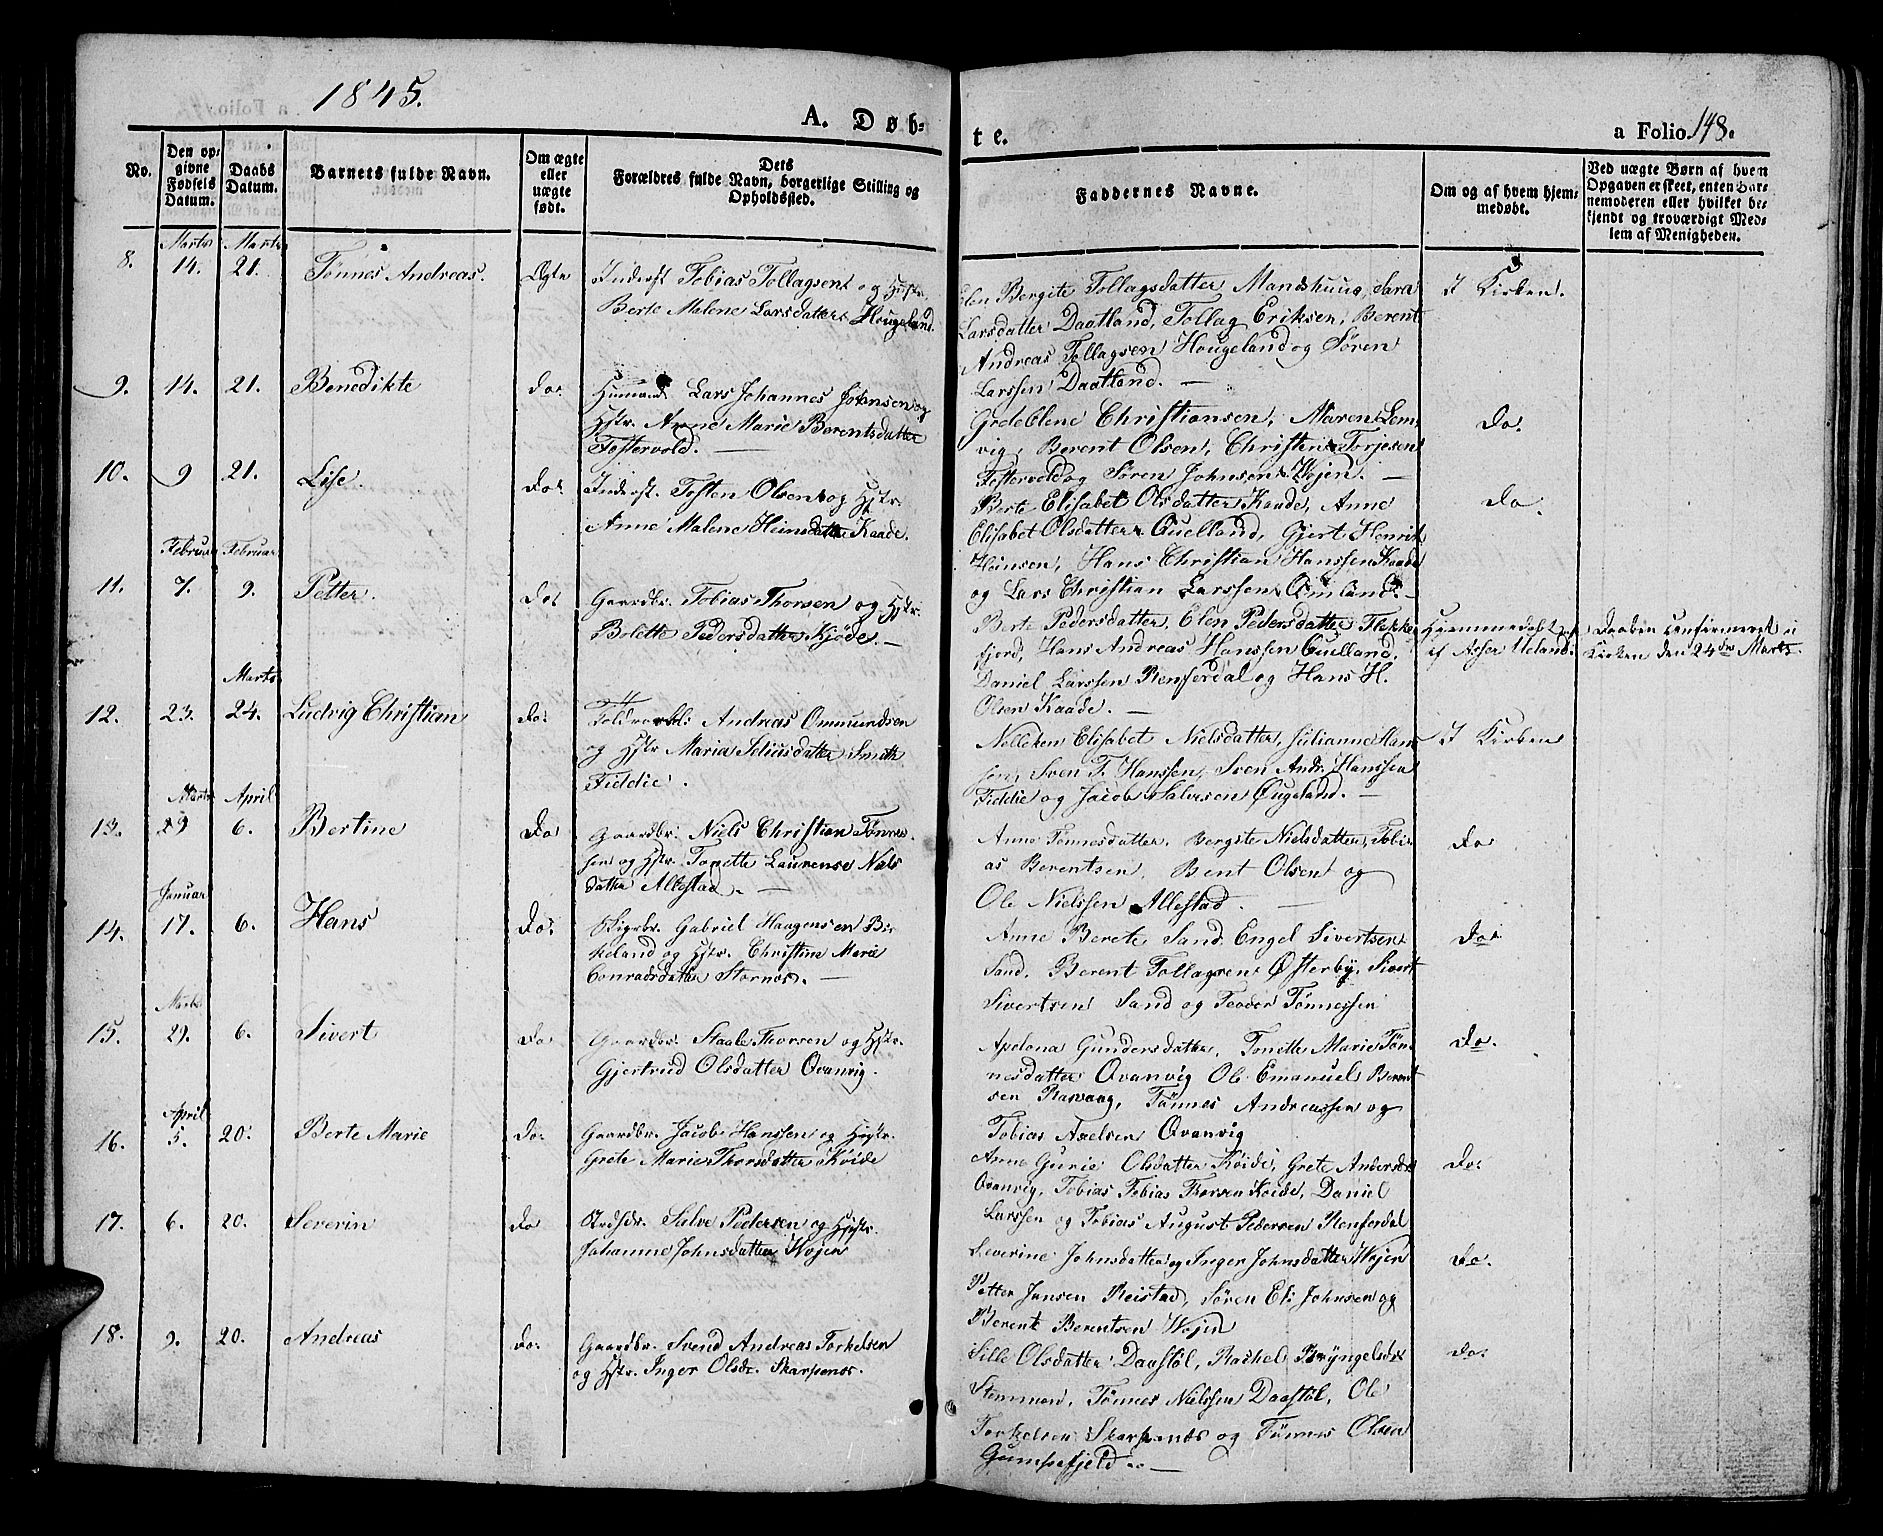 1845.
A. Døb-
te.
a Folio 148.
No.
Den op-
givne
Fødsels
Datum.
Daabs
Datum.
Barnets fulde Navn.
Om ægte
eller
uægte
født.
Dets
Forældres fulde Navn, borgerlige Stilling og
Opholdssted.
Faddernes Navne.
Om og af hvem hjem-
medøbt.
Ved uægte Børn af hvem
Opgaven er skeet, enten Bar-
nemoderen eller hvilket be-
kjendt og troværdigt Med-
lem af Menigheden.
8.
Marts
14.
Marts
21.
Tønnes Andreas.
Ægte
Inderst Tobias Tollagsen og Hstr.
Berte Malene Larsdatter Hougeland.
Elen Bergite Tollagsdatter Mandshuus, Sara
Larsdatter Daatland, Tollag Eriksen, Berent
Andreas Tollagsen Hougeland og Søren
Larssen Daatland. —
I Kirken.
9.
14.
21.
Benedikte
Do.
Huusmd. Lars Johannes Johnsen og
Hstr. Anne Marie Berentsdatter
Fostervold. —
Christiansen, Maren Lem-
vig, Berent Olsen, Christen Torjesen
Fostervold og Søren Johnsen Wojen. —
Do.
10.
9
21.
Lise.
Do.
Inderst. Tosten Olsen og Hstr.
Anne Malene Heinsdatter Kaade.
Berte Elisabet Olsdatter Kaade, Anne
Elisabet Olsdatter Guelland, Gjert Henrik
Heinsen, Hans Christian Hanssen Kaade
og Lars Christian Larssen Omland. —
Do.
11.
Februar
7.
Februar
9.
Petter.
Do.
Gaardbr. Tobias Thorsen og Hstr.
Bolette Pedersdatter Kjöde. —
Berte Pedersdatter, Elen Pedersdatter Flekke-
fjord, Hans Andreas Hanssen Guelland,
Daniel Larssen Renferdal og Hans H.
Olsen Kaade. —
Hjemmedøbt
af Asser Ueland.
Daaben confirmeret i
Kirken den 24de Marts.
12.
23.
Marts
24.
Ludvig Christian
Do.
Andreas Ommundsen
og Hstr Maria Seliusdatter Smith
Fiddie.
Nelleken Elisabet Nielsdatter, Julianne Han-
sen, Sven F. Hanssen, Sven Andr. Hanssen
Fiddie og Jacob Salvesen Øugeland. —
I Kirken
13.
Marts
29
April
6.
Bertine
Do
Gaardbr. Niels Christian Tønnes-
sen og Hstr. Tonette Laurense Niels
datter Allestad. —
Anne Tønnesdatter, Bergite Nielsdatter, Tobi-
as Berentsen, Bent Olsen og
Ole Nielssen Allestad. —
Do
14.
Januar
17.
6.
Hans
Do.
Gabriel Haagensen Bir-
keland og Hstr. Christine Marie
Conradsdatter Stornes. —
Anne Berete Sand, Engel Sivertsen
Sand, Berent Tollagsen Østerby, Sivert
Sivertsen Sand og Feoder Tønnessen
Do.
15.
Marts
29.
6.
Sivert
Do
Gaardbr. Staale Thorsen og Hstr.
Gjertrud Olsdatter Ovanvig.
Apelona Gundersdatter, Tonette Marie Tön-
nesdatter Ovanvig Ole Emanuel Berent
sen Ravaag, Tönnes Andreassen og
Tobias Axelsen Ovanvig
Do.
16.
April
5.
20.
Berte Marie
Do.
Gaardbr. Jacob Hanssen og Hstr.
Grete Marie Thorsdatter Köide
Anne Gurie Olsdatter Köide, Grete Andersdr
Ovanvig, Tobias Tobias Thorsen Köide, Daniel
Larssen og Tobias August Pedersen Renferdal
Do.
17.
6.
20.
Severin
Do
Salve Pedersen og Hstr.
Johanne Johnsdatter Wojen
Severine Johnsdatter og Inger Johnsdatter Wojen
Petter Jansen Reistad, Søren Eli Johnsen og
Berent Berentsen Wojen
Do.
18.
9.
20.
Andreas
Do.
Gaardbr. Svend Andreas Torkelsen
og Hstr. Inger Olsdr. Skarpenes.
Sille Olsdatter Daastöl, Rachel Bryngelsdr
Stemmen, Tönnes Nielssen Daastöl, Ole
Torkelsen Skarpenes og Tönnes Olsen
Gumpefjeld. —
Do.